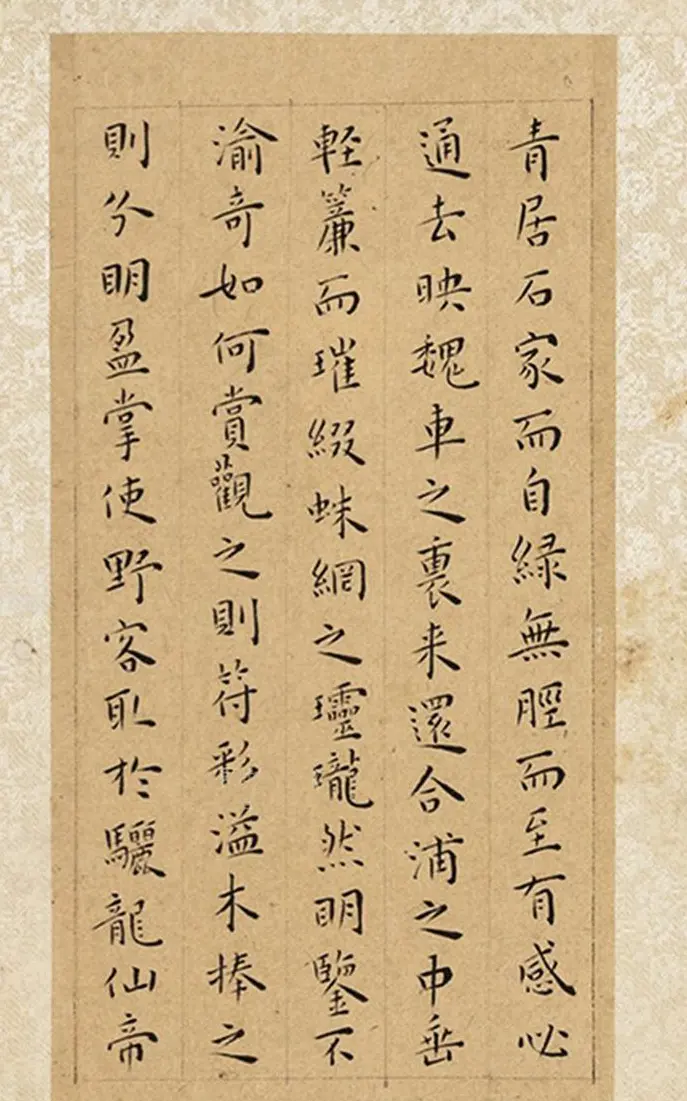 青居石家而自緑無脛而至有感必
通去映魏車之裏来還合浦之中垂
軽簾而璀綴蛛網之瓗瓏然明鑒不
渝奇如何賞觀之則符彩溢木捧之
則分明盈掌使野客耴於驪龍仙帝